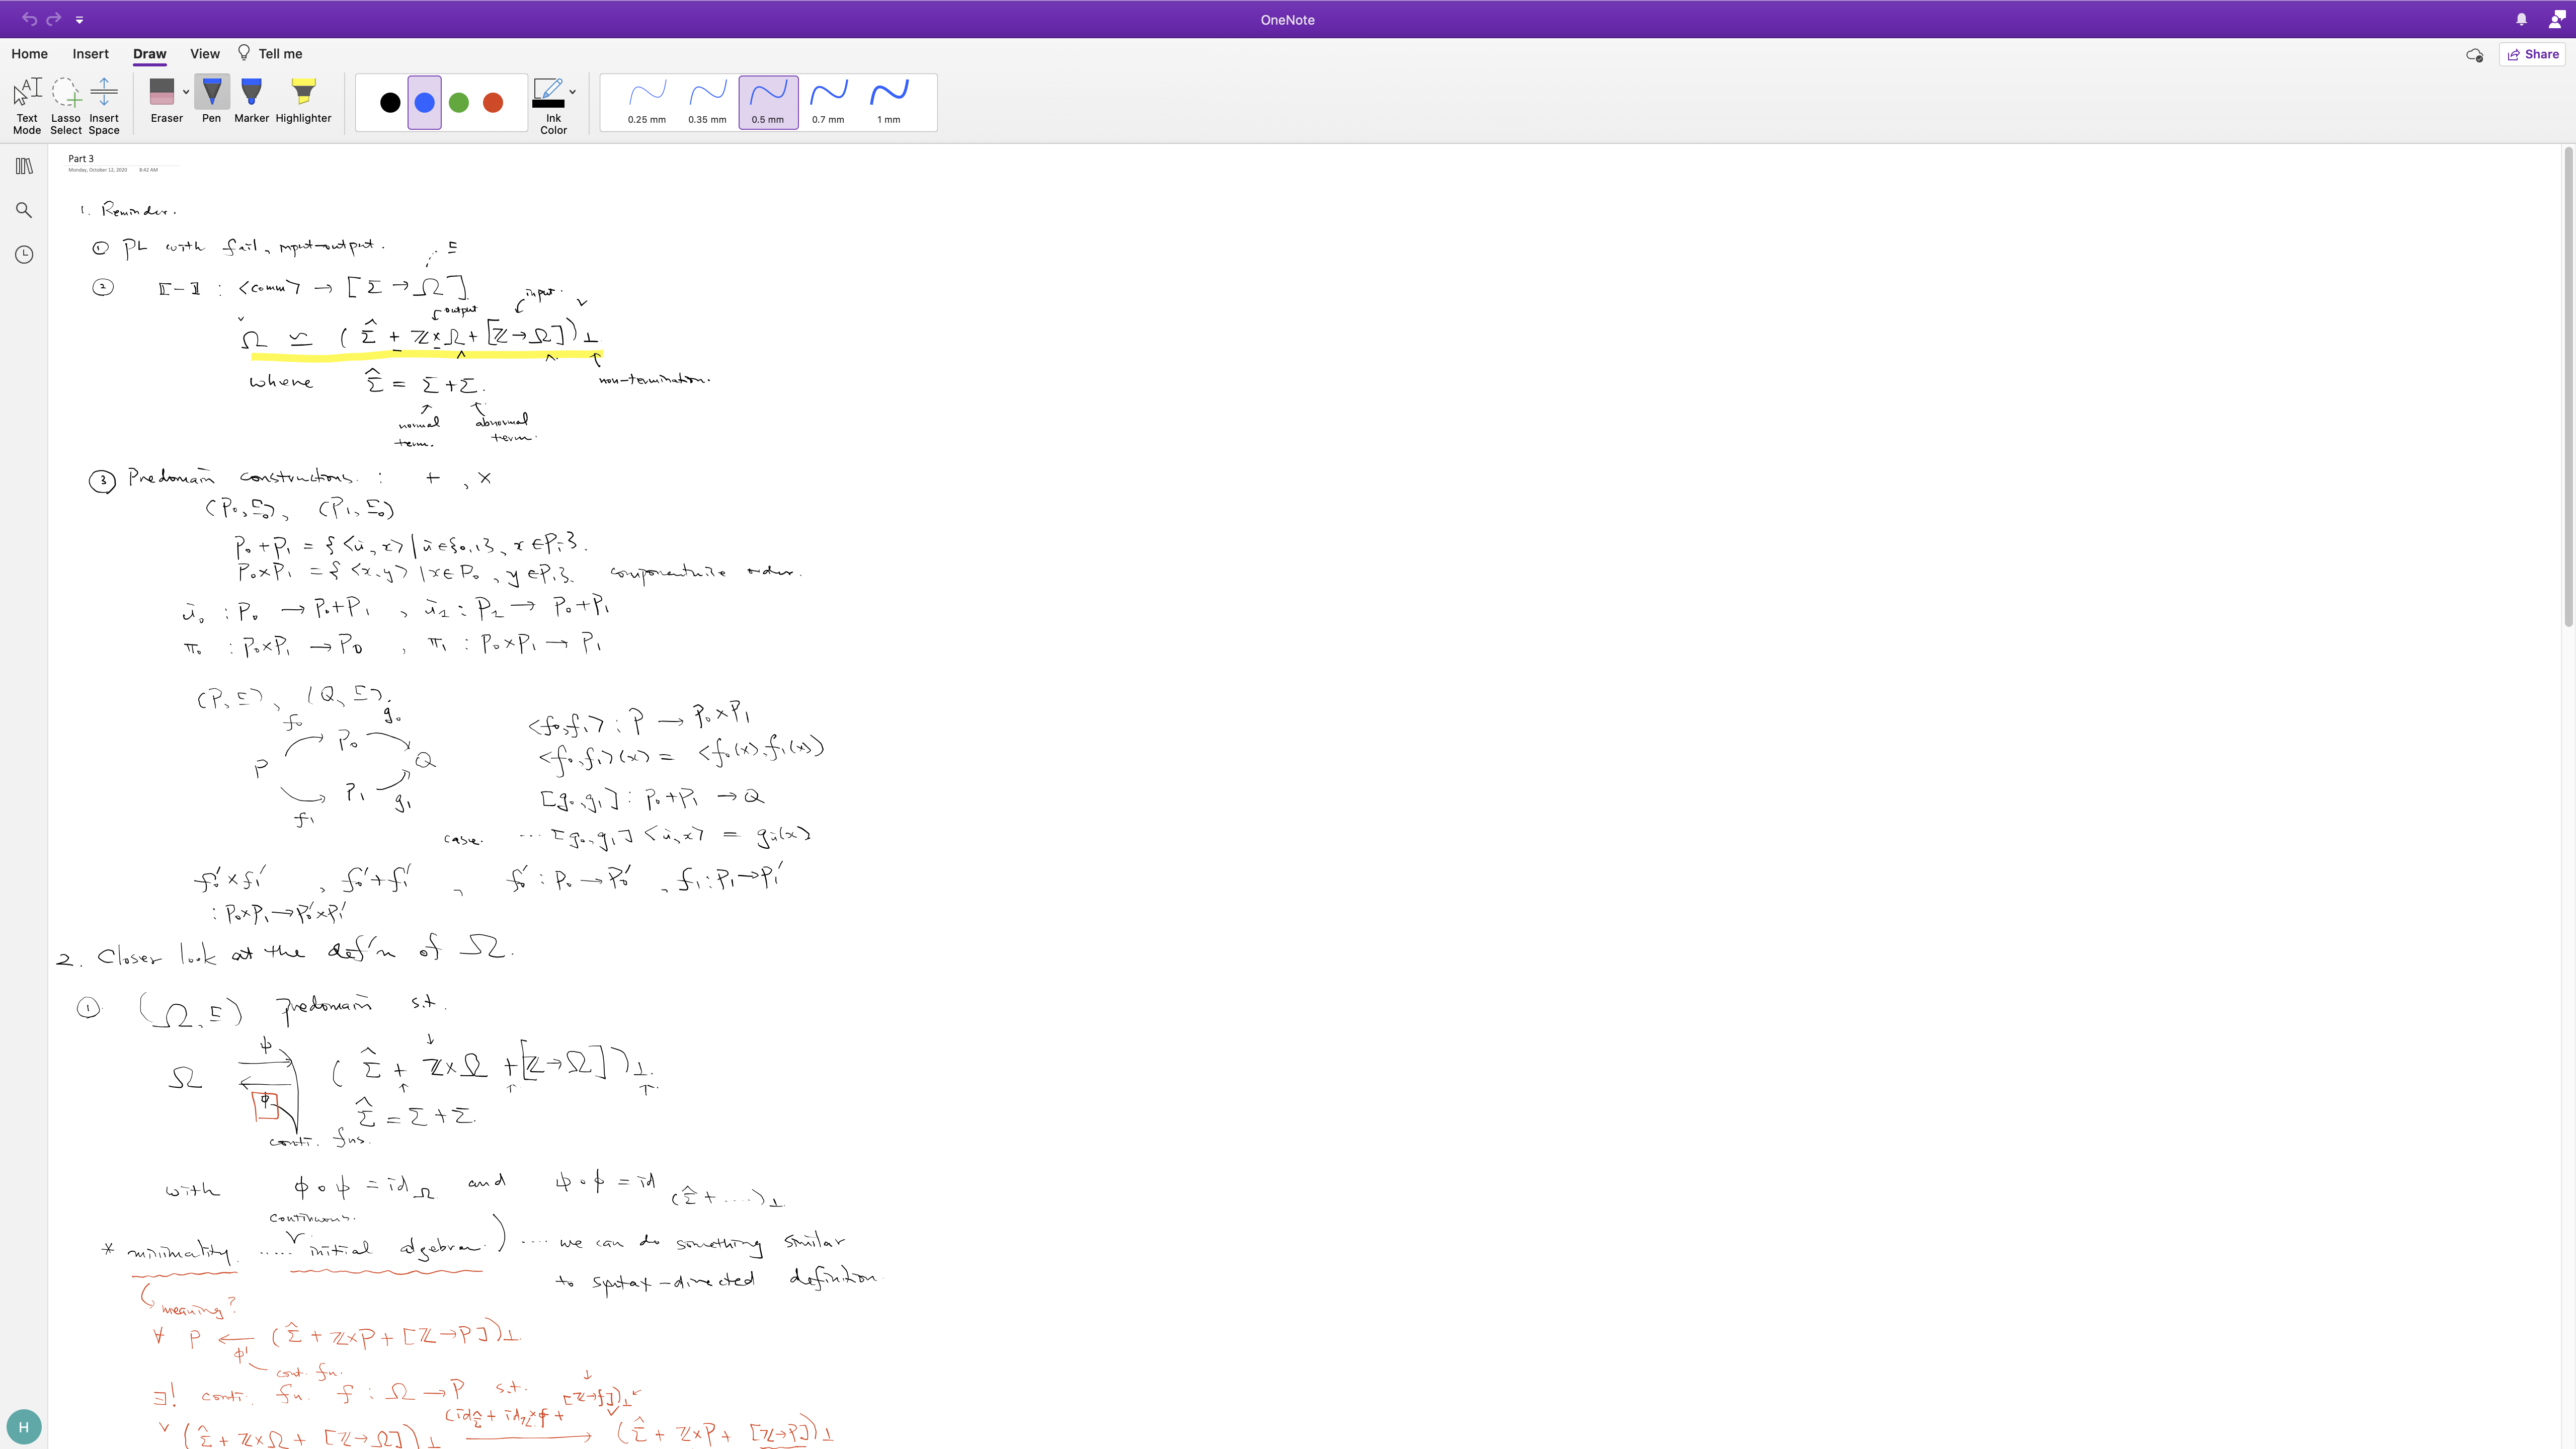 OneNote
Home Insert Draw View Tell me
Share
Text Mode
Lasso Select
Insert Space
Eraser
Pen
Marker
Highlighter
Ink Color
0.25 mm
0.35 mm
0.5 mm
0.7 mm
1 mm
Part 3
Monday, October 12, 2020 8:42 AM
1. Reminder.
① PL with fail, input-output.
⊑
② ⟦-⟧ : <comm> → [Σ → Ω]
output
input.
Ω ≃ (Σ̂ + ℤ×Ω + [ℤ→Ω])⊥
where Σ̂ = Σ + Σ.
non-termination.
normal term.
abnormal term.
③ Predomain constructions : + , ×
(P₀, ⊑₀), (P₁, ⊑₀)
P₀+P₁ = {<i, x> | i∈{0,1}, x∈Pᵢ}.
P₀×P₁ = {<x,y> | x∈P₀, y∈P₁}. componentwise order.
i₀ : P₀ → P₀+P₁ , i₁ : P₁ → P₀+P₁
π₀ : P₀×P₁ → P₀ , π₁ : P₀×P₁ → P₁
(P, ⊑), (Q, ⊑).
f₀ g₀
P₀
P Q
P₁
f₁ g₁
<f₀,f₁> : P → P₀×P₁
<f₀,f₁>(x) = <f₀(x), f₁(x)>
[g₀,g₁] : P₀+P₁ → Q
case. ... [g₀,g₁]<i,x> = gᵢ(x)
f₀'×f₁' , f₀'+f₁' , f₀' : P₀→P₀' , f₁ : P₁→P₁'
: P₀×P₁→P₀'×P₁'
2. Closer look at the def'n of Ω.
① (Ω, ⊑) predomain s.t.
ψ
Ω (Σ̂ + ℤ×Ω + [ℤ→Ω])⊥.
ϕ
Σ̂ = Σ + Σ.
conti. fns.
with ϕ∘ψ = id_Ω and ψ∘ϕ = id_(Σ̂+....)⊥.
continuous.
* minimality. ..... initial algebra.) .... we can do something similar
to syntax-directed definition.
meaning?
∀ P ← (Σ̂ + ℤ×P + [ℤ→P])⊥.
ϕ'
cont. fn.
∃! conti. fn. f : Ω → P s.t.
(id_Σ̂ + id_ℤ×f + [ℤ→f])⊥
(Σ̂ + ℤ×Ω + [ℤ→Ω])⊥ → (Σ̂ + ℤ×P + [ℤ→P])⊥
H